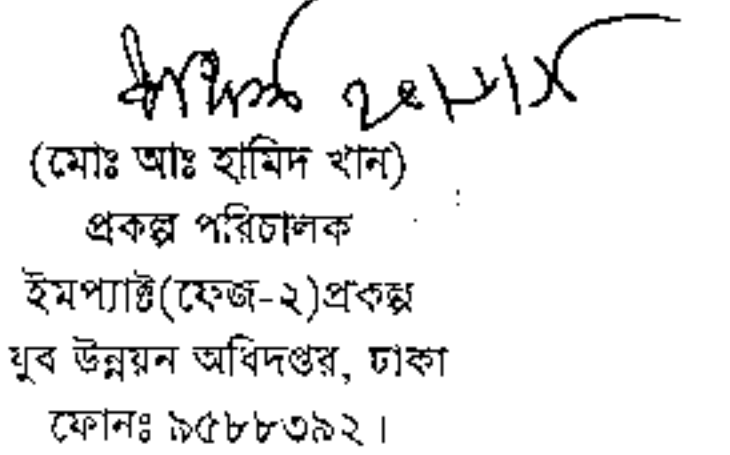 (মোঃ আঃ হামিদ খান)
প্রকল্প পরিচালক
ইমপ্যাক্ট(ফেজ-২)প্রকল্প
যুব উন্নয়ন অধিদপ্তর, ঢাকা
ফোনঃ ৯৫৮৮৩৯২।